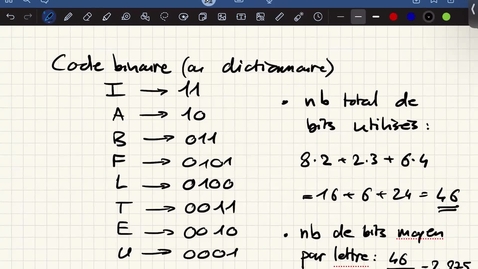 Code binaire (ou dictionnaire)
I → 11
A → 10
B → 011
F → 0101
L → 0100
T → 0011
E → 0010
U → 0001
• nb total de
bits utilisés :
8·2 + 2·3 + 6·4
= 16 + 6 + 24 = 46
• nb de bits moyen
par lettre : 46